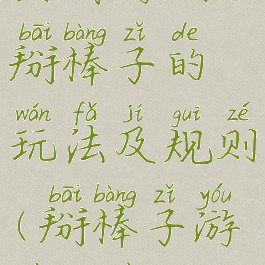 bāi bàng zǐ de
掰棒子的
wán fǎ jí guī zé
玩法及规则
bāi bàng zǐ yóu
(掰棒子游